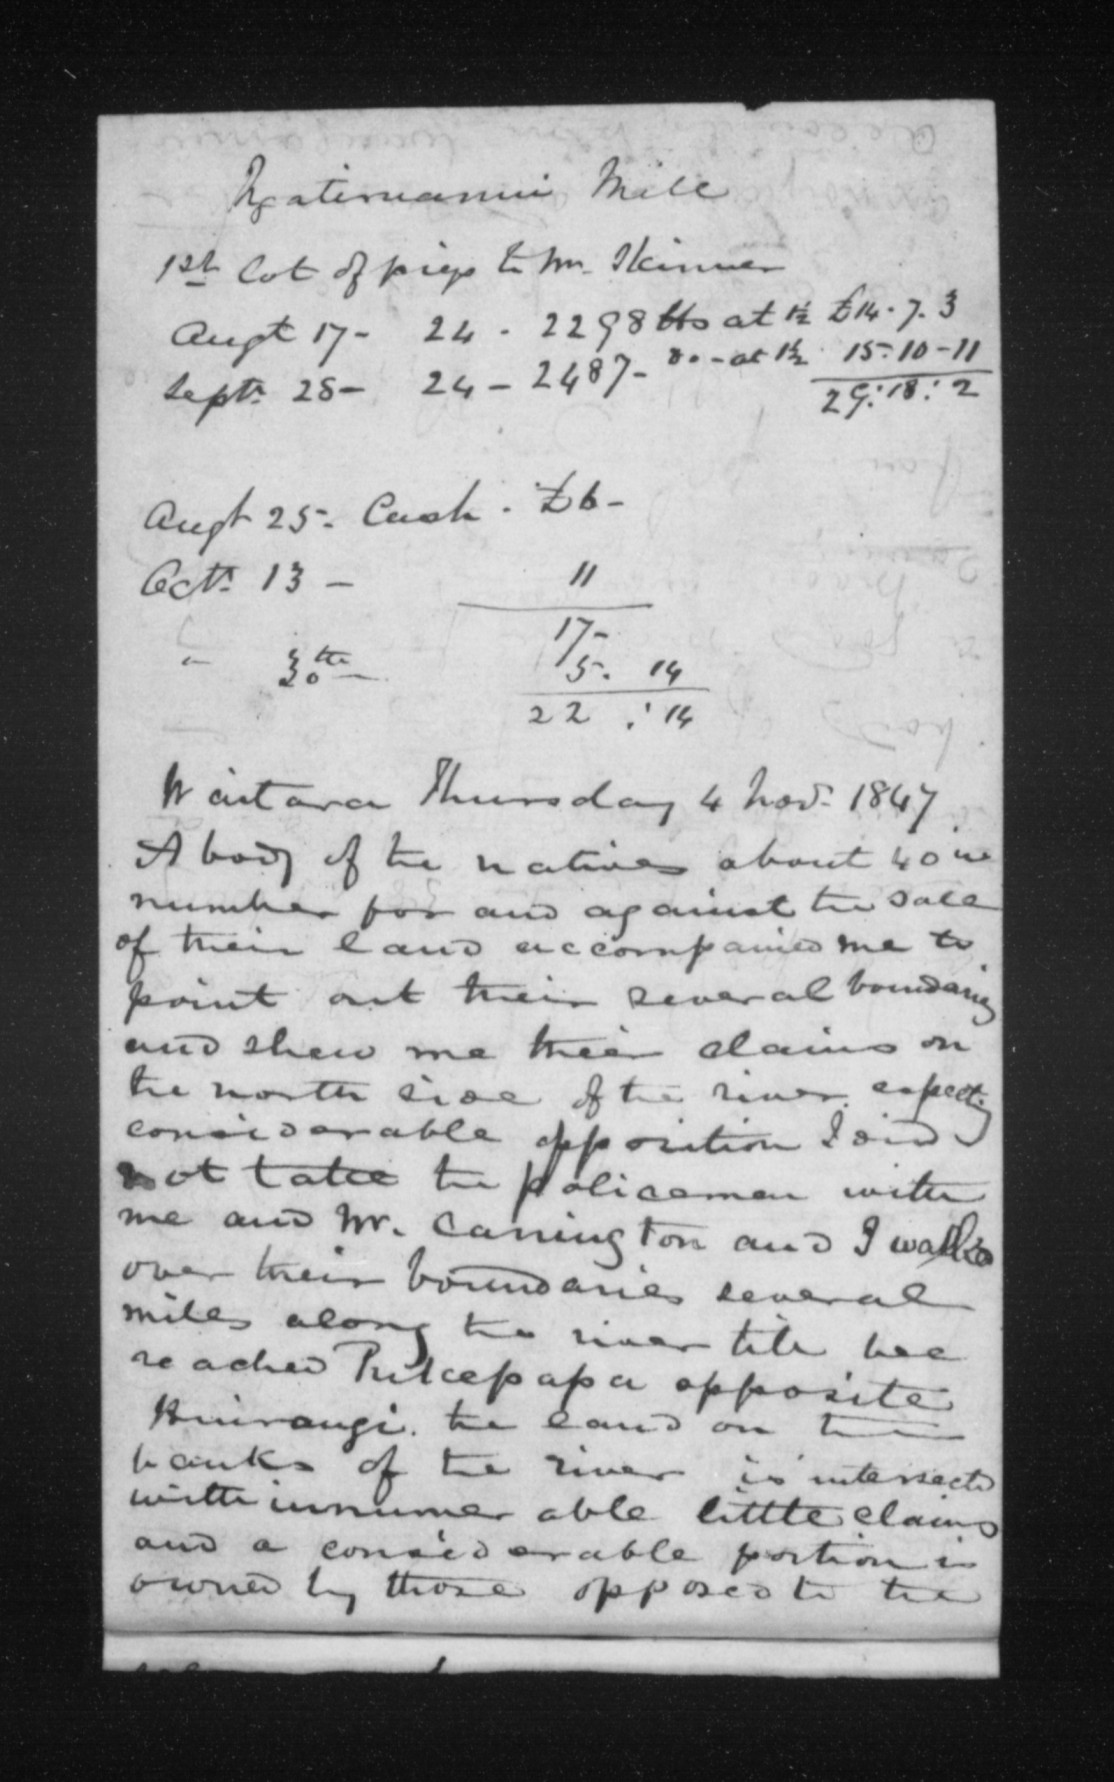 Ngatiruanui Mill
1st Lot of pigs to Mr. Skinner
Augt 17 - 24 - 2298 lbs at 1½ £14. 7. 3
Septr 28 - 24 - 2487 - Do - at 1½ 15-10-11
29:18:2
Augt 25. Cash. £6-
Octr. 13 - 11
17-
" 30th 5. 14
22 : 14
Waitara Thursday 4 Nov. 1847
A body of the natives about 40 in
number for and against the sale
of their land accompanied me to
point out their several boundaries
and shew me their claims on
the north side of the river. expecting
considerable opposition I did
not take the policemen with
me and Mr. Carrington and I walked
over their boundaries several
miles along the river till we
reached Pukepapa opposite
Huirangi. the land on the
banks of the river is intersected
with innumerable little claims
and a considerable portion is
owned by those opposed to the